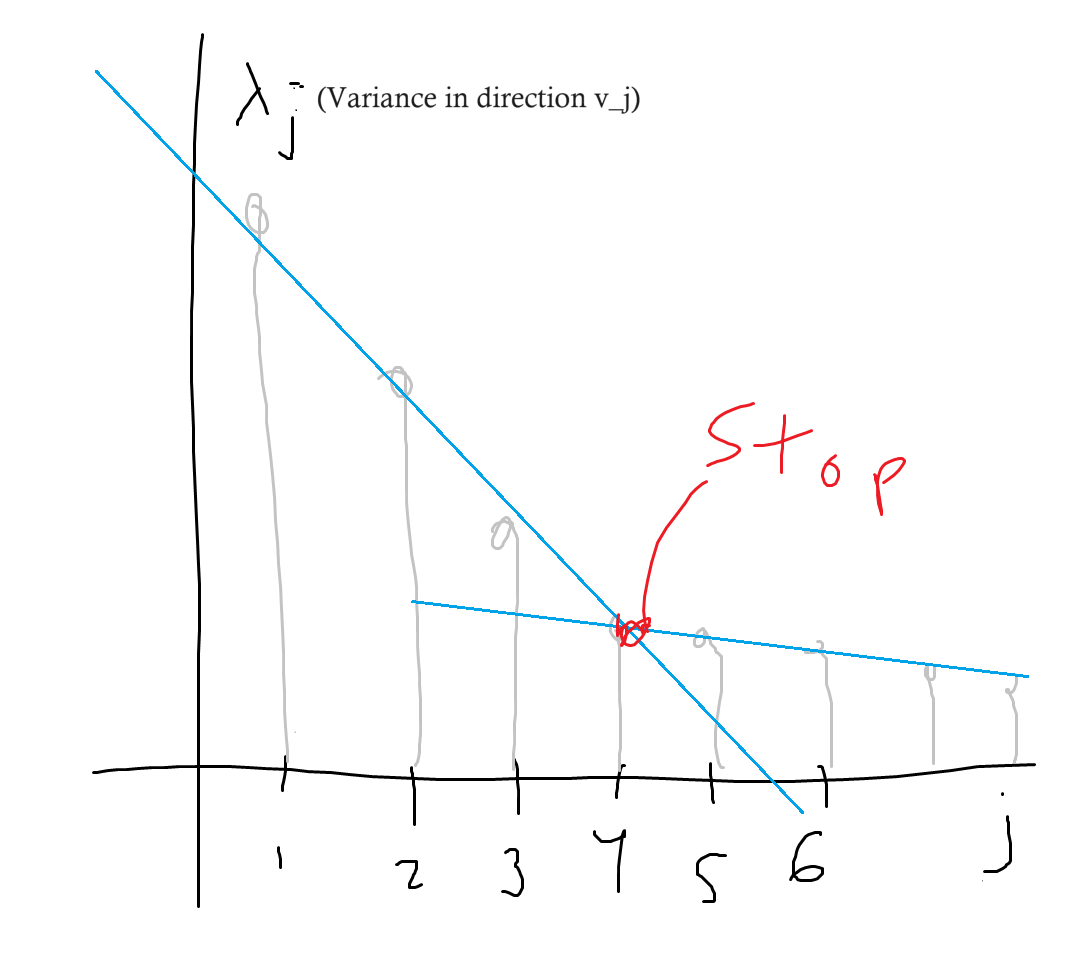 λj (Variance in direction v_j)
Stop
1 2 3 4 5 6 j